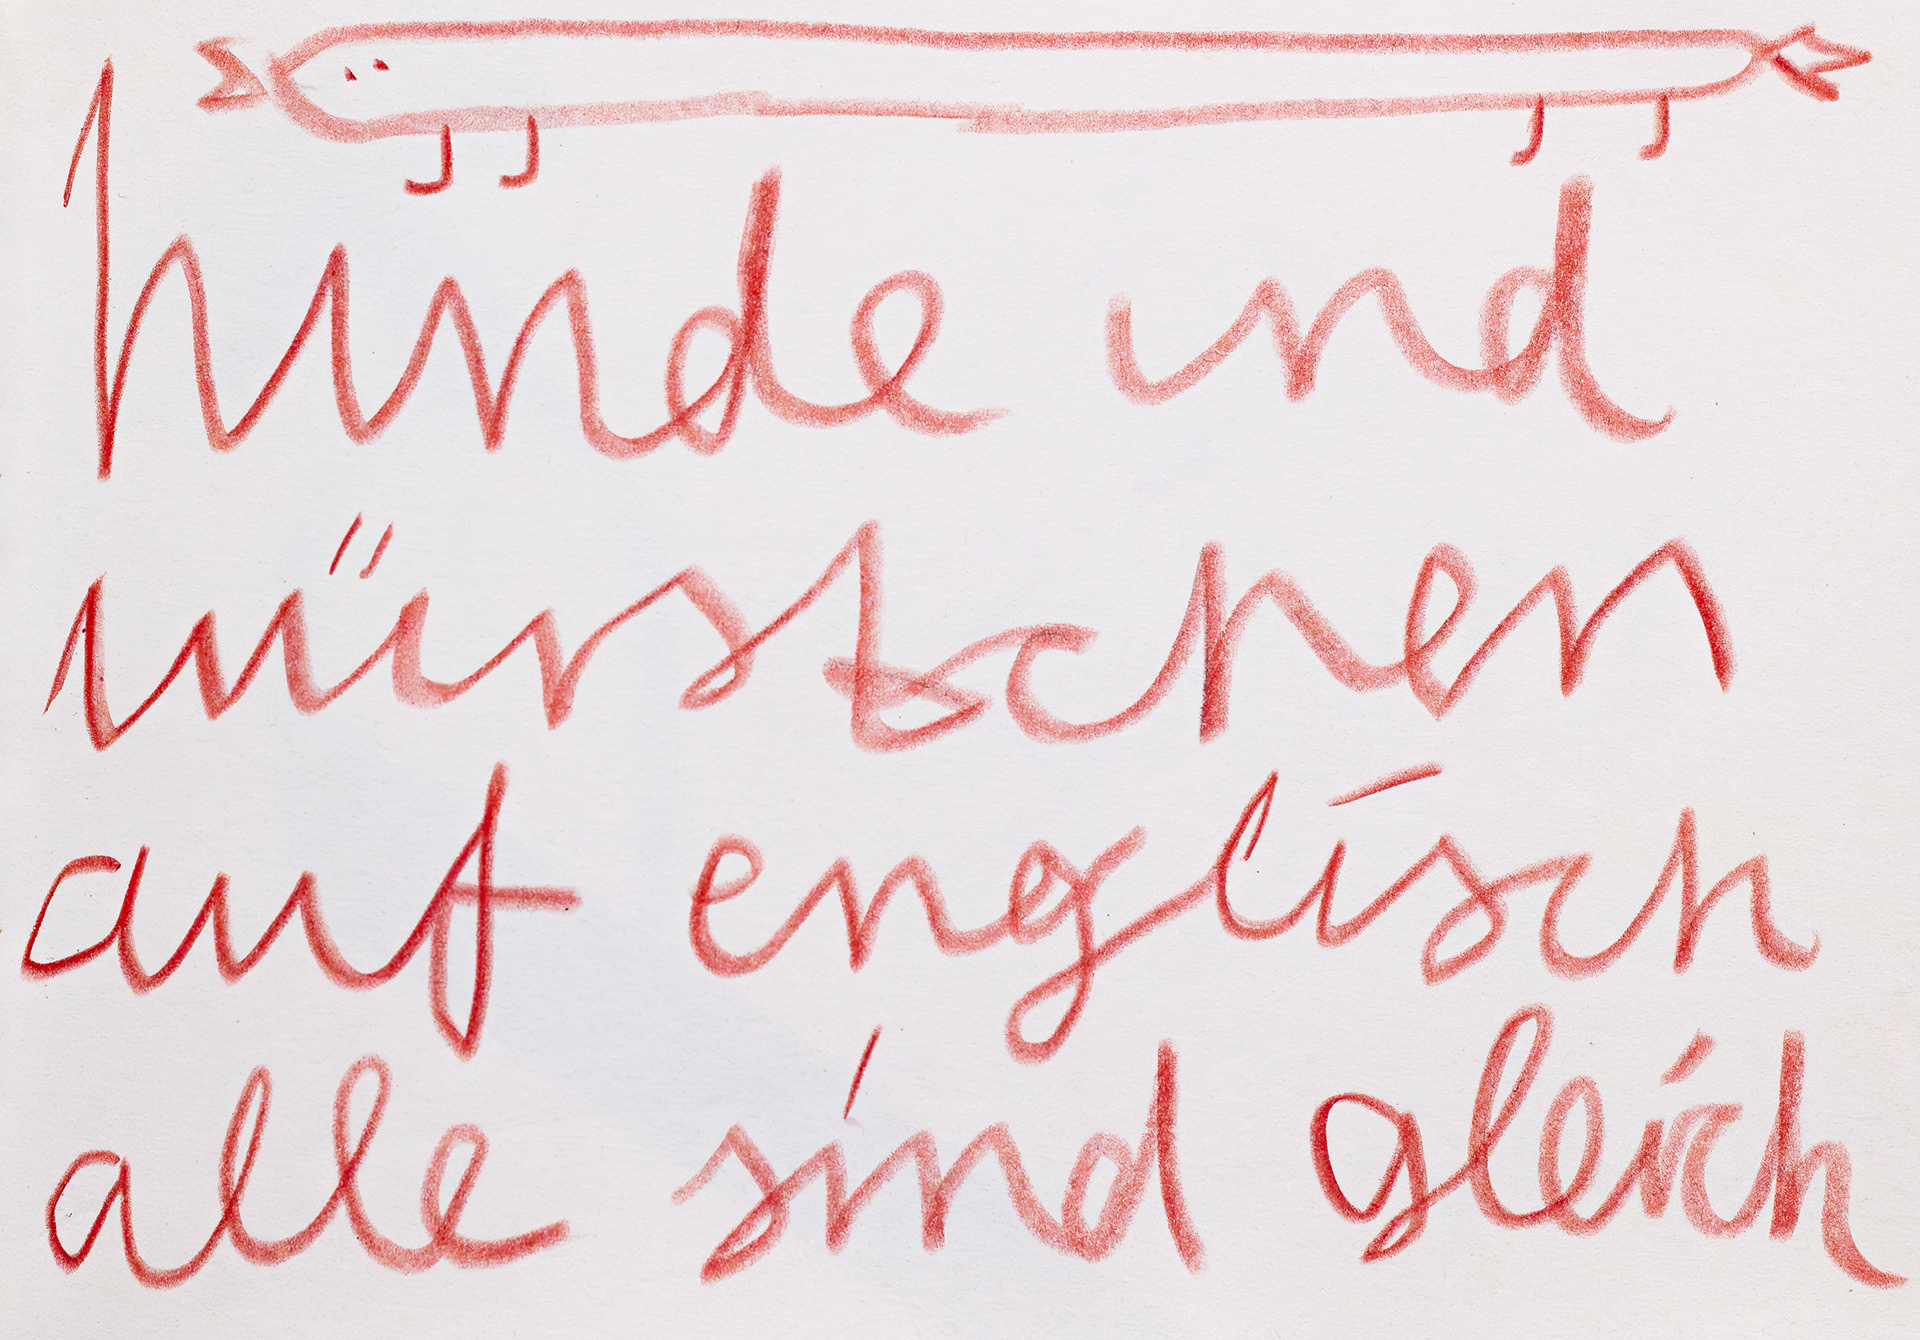 hunde und
würstchen
auf englisch
alle sind gleich